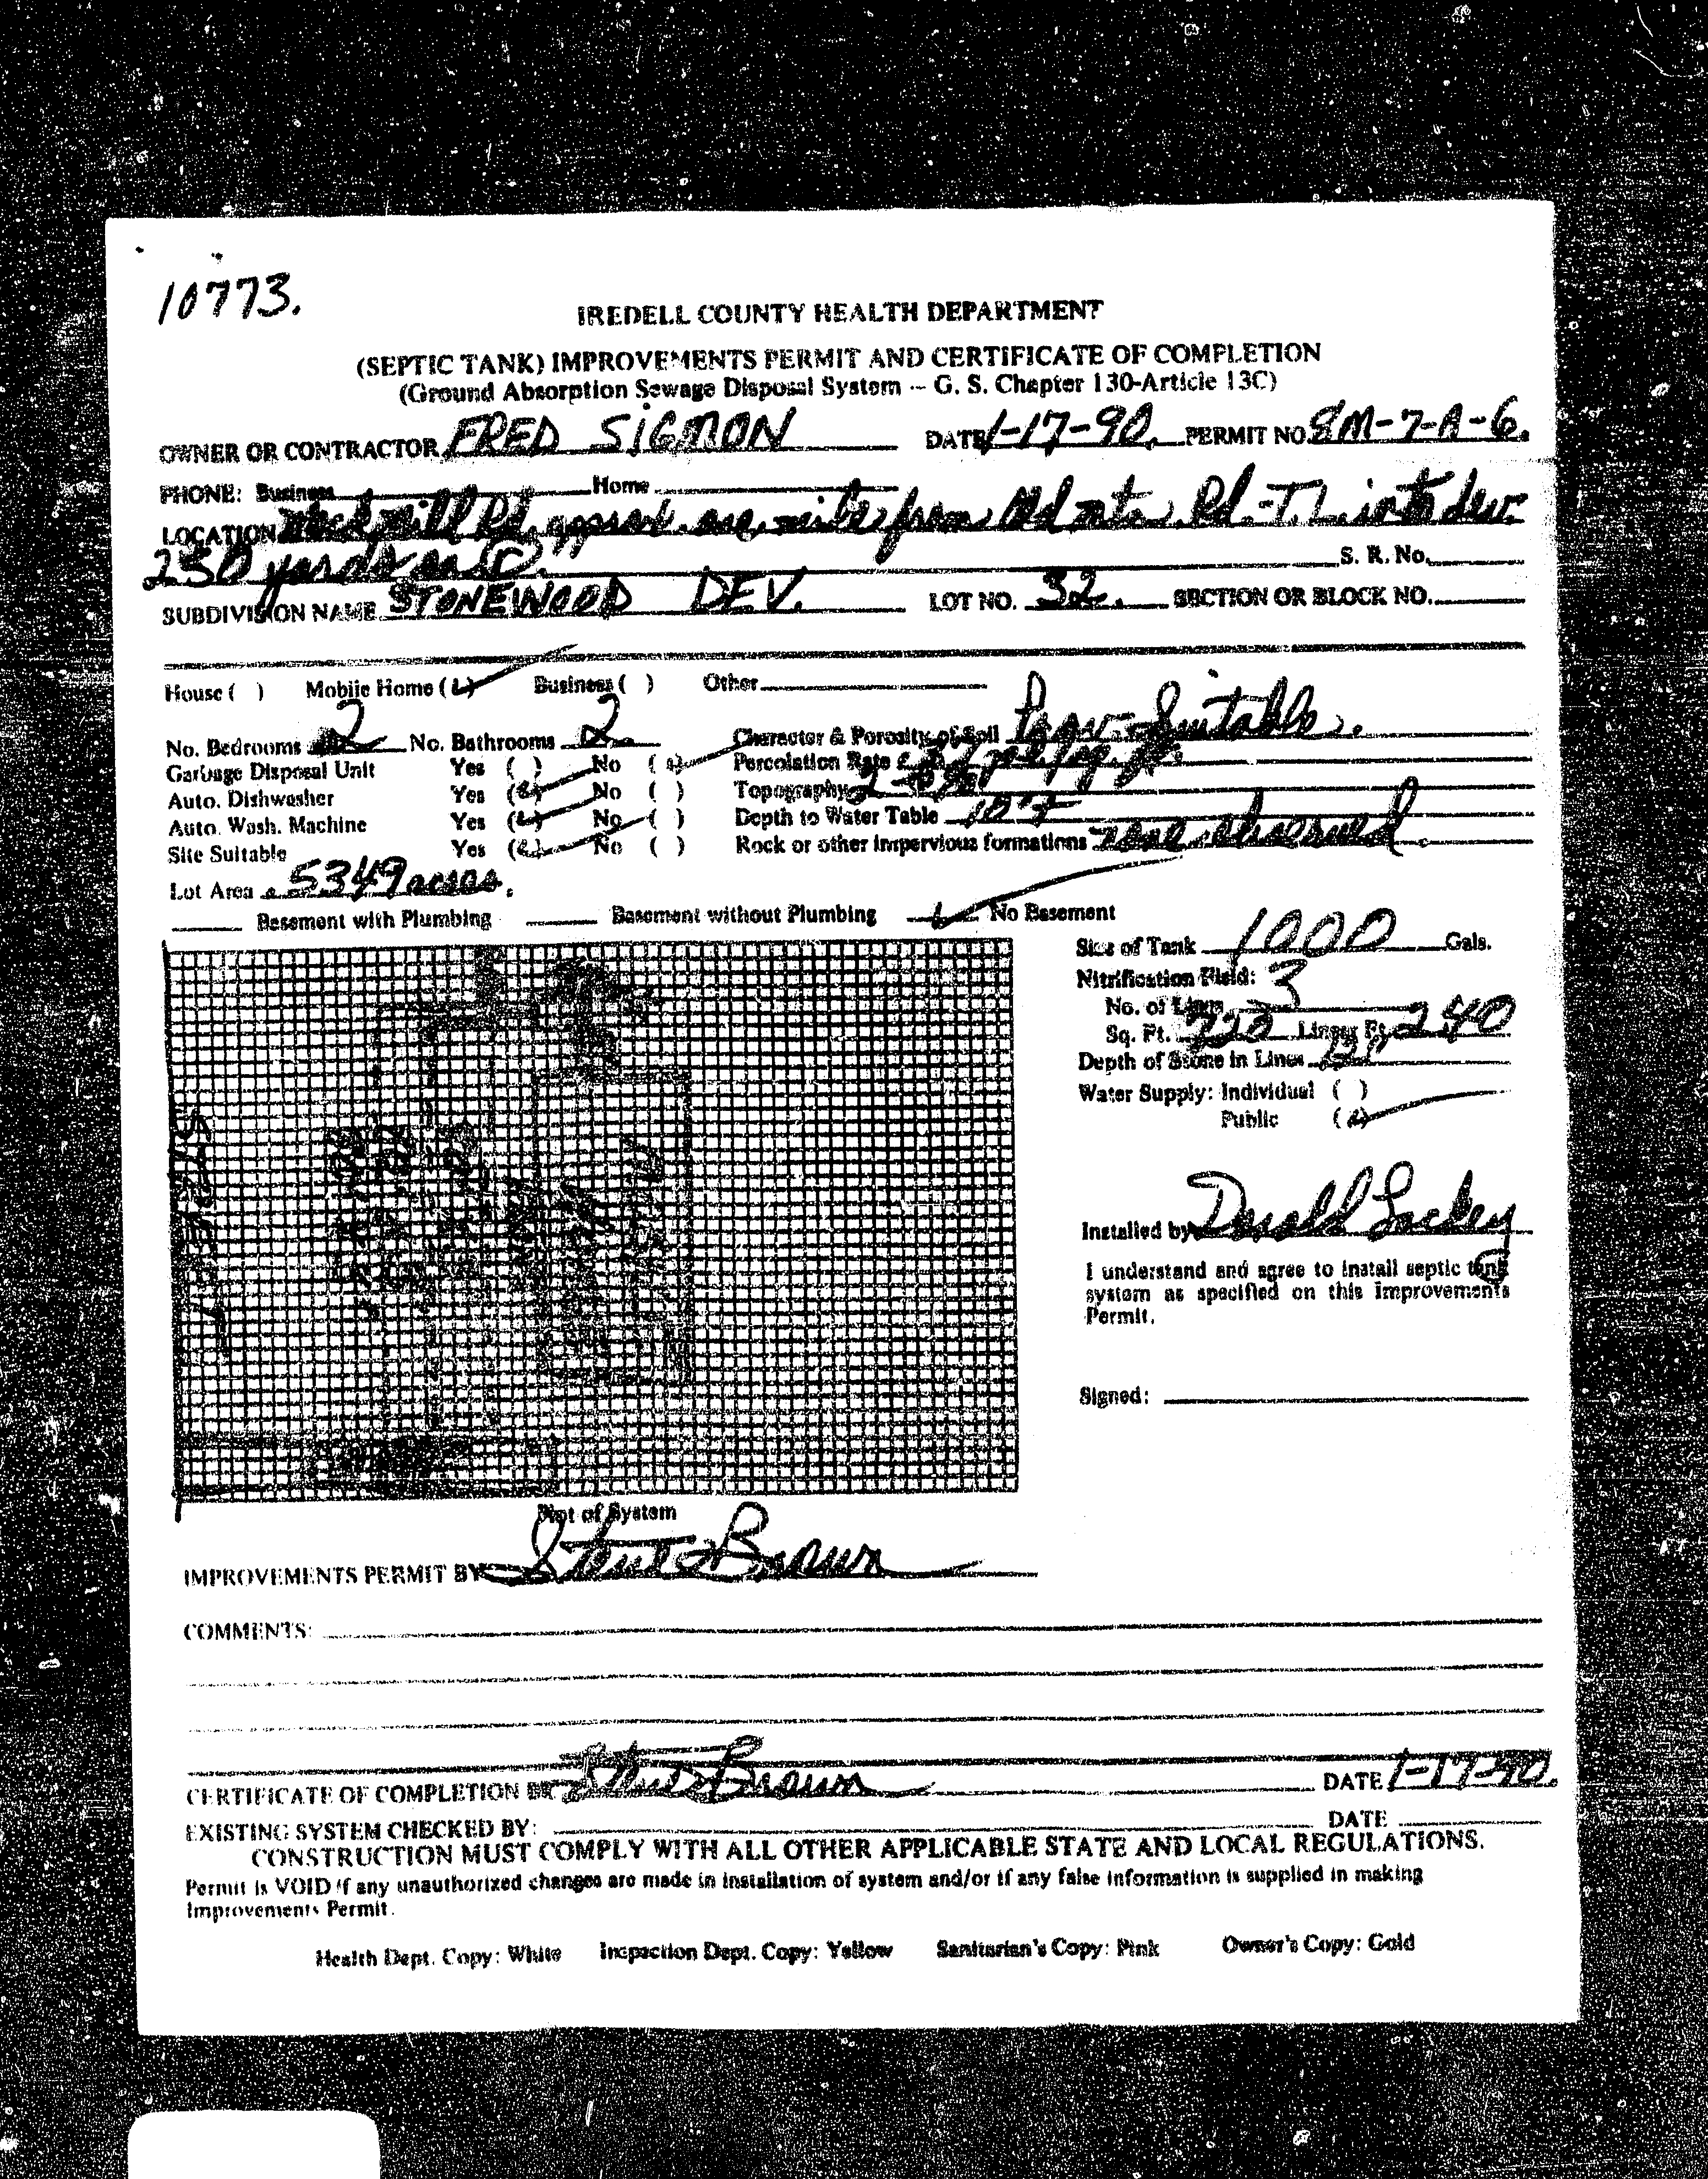 10773.
IREDELL COUNTY HEALTH DEPARTMENT
(SEPTIC TANK) IMPROVEMENTS PERMIT AND CERTIFICATE OF COMPLETION
(Ground Absorption Sewage Disposal System -- G. S. Chapter 130-Article 13C)
OWNER OR CONTRACTOR FRED SIGMON DATE 1-17-90. PERMIT NO. 8M-7-A-6.
PHONE: Business Home
LOCATION mill Rd. approx. one mile from Old Rd.-T.L. into dev.
250 yards on (r). S. R. No.
SUBDIVISION NAME STONEWOOD DEV. LOT NO. 32. SECTION OR BLOCK NO.
House ( ) Mobile Home ( ) Business ( ) Other
No. Bedrooms 2 No. Bathrooms 2 Character & Porosity of Soil Prov. Suitable.
Garbage Disposal Unit Yes ( ) No ( ) Percolation Rate
Auto. Dishwasher Yes ( ) No ( ) Topography
Auto. Wash. Machine Yes ( ) No ( ) Depth to Water Table
Site Suitable Yes ( ) No ( ) Rock or other impervious formations none observed.
Lot Area .5349 acres.
Basement with Plumbing Basement without Plumbing No Basement
Size of Tank 1000 Gals.
Nitrification Field:
No. of Lines 3
Sq. Ft. 720 Linear Ft. 240
Depth of Stone in Lines
Water Supply: Individual ( )
Public ( )
Installed by Donald Lackey
I understand and agree to install septic tank
system as specified on this Improvements
Permit.
Signed:
Plot of System
IMPROVEMENTS PERMIT BY Brown
COMMENTS:
CERTIFICATE OF COMPLETION BY Brown DATE 1-17-90.
EXISTING SYSTEM CHECKED BY: DATE
CONSTRUCTION MUST COMPLY WITH ALL OTHER APPLICABLE STATE AND LOCAL REGULATIONS.
Permit is VOID if any unauthorized changes are made in installation of system and/or if any false information is supplied in making
Improvements Permit.
Health Dept. Copy: White Inspection Dept. Copy: Yellow Sanitarian's Copy: Pink Owner's Copy: Gold